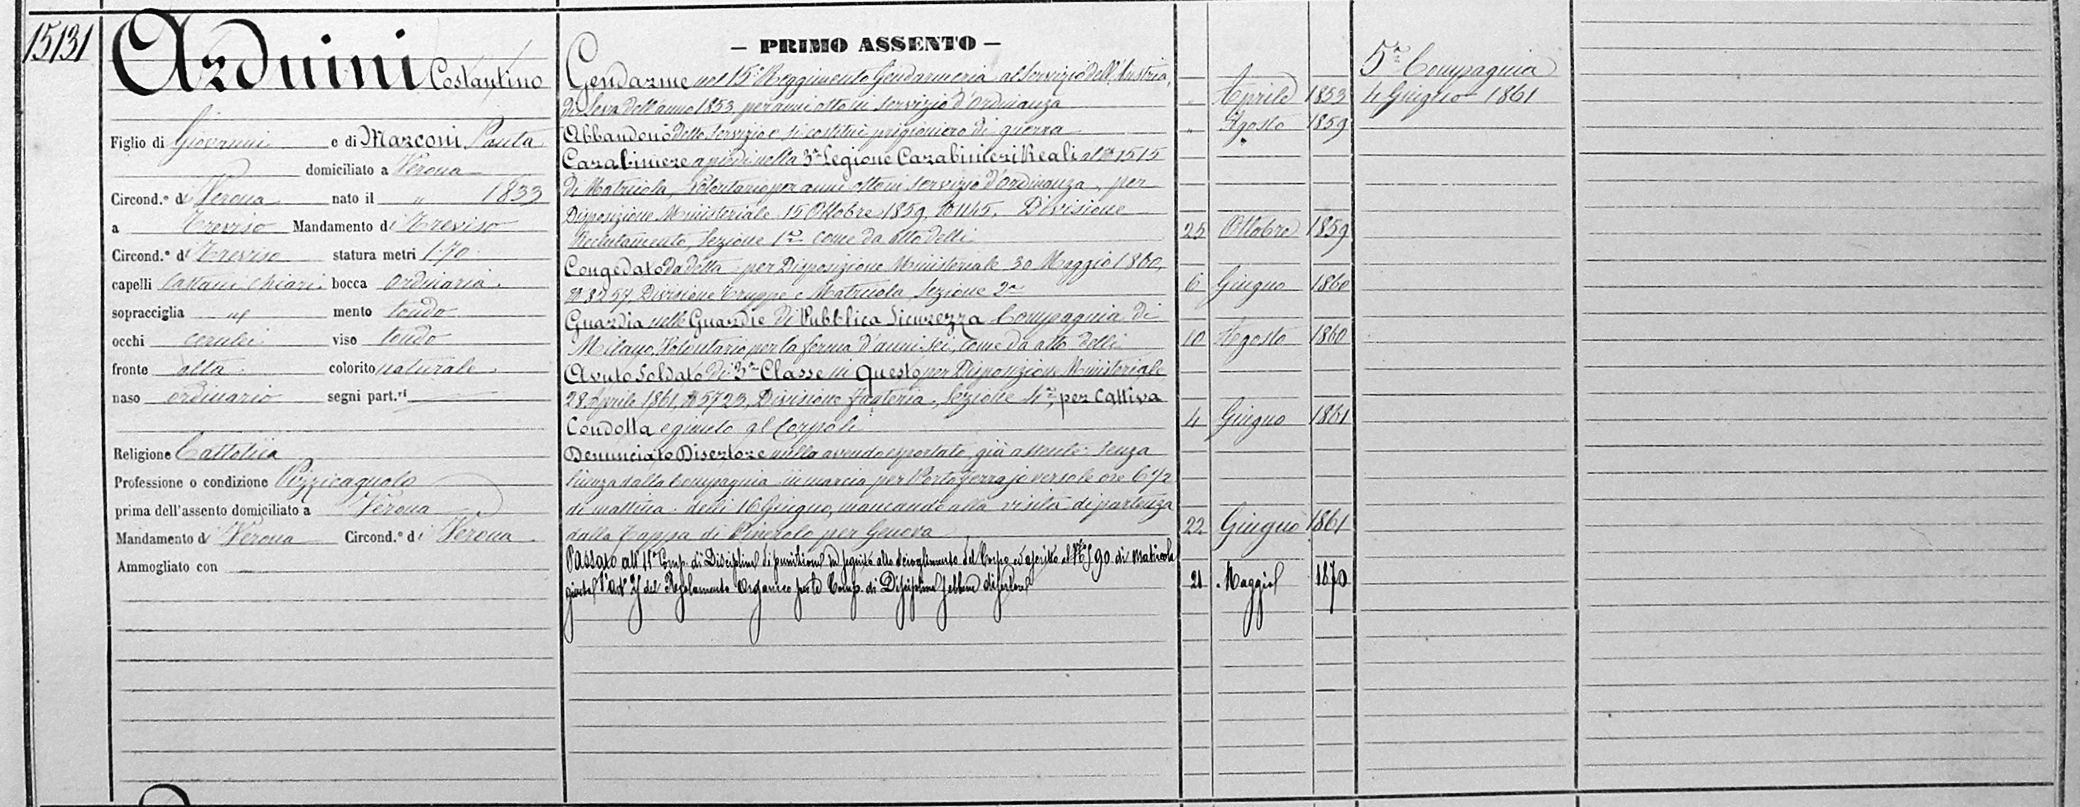 15131
Arduini Costantino
Figlio di Giovanni e di Marconi Paola
domiciliato a Verona
Circond.º di Verona nato il " 1833
a Treviso Mandamento di Treviso
Circond.º di Treviso statura metri 1.70
capelli Castani chiari bocca ordinaria
sopracciglia id mento tondo
occhi cerulei viso tondo
fronte alta colorito naturale
naso ordinario segni part.ri
Religione Cattolica
Professione o condizione Pizzicagnolo
prima dell'assento domiciliato a Verona
Mandamento di Verona Circond.º di Verona
Ammogliato con
— PRIMO ASSENTO —
Gendarme nel 15º Reggimento Gendarmeria al servizio dell'Austria,
di Leva dell'anno 1853 per anni otto in servizio d'Ordinanza " Aprile 1853
Abbandonò detto servizio e si costituì prigioniero di guerra " Agosto 1859
Carabiniere a piedi nella 3ª Legione Carabinieri Reali al Nº 1515
di Matricola, Volontario per anni otto in servizio d'Ordinanza, per
Disposizione Ministeriale 15 Ottobre 1859, Nº 1145, Divisione
Reclutamento, Sezione 1ª come da atto delli 25 Ottobre 1859
Congedato da detta per Disposizione Ministeriale 30 Maggio 1860,
Nº 8257, Divisione Truppe e Matricola Sezione 2ª 6 Giugno 1860
Guardia nelle Guardie di Pubblica Sicurezza Compagnia di
Milano, Volontario per la ferma d'anni sei, come da atto delli 10 Agosto 1860
Avuto Soldato di 3ª Classe in Questo per Disposizione Ministeriale
28 Aprile 1861, Nº 5723, Divisione Fanteria, Sezione 4ª, per Cattiva
Condotta e giunto al Corpo li 4 Giugno 1861
Denunciato Disertore nulla avendo esportato, già assente senza
licenza dalla Compagnia in marcia per Portoferrajo verso le ore 6 1/2
di mattina delli 16 Giugno, mancando alla visita di partenza
dalla Tappa di Pinerolo per Genova 22 Giugno 1861
Passato all' 11ª Comp. di Disciplina di punizione in seguito allo scioglimento del Corpo ed ascritto al Nº 590 di Matricola
giusta l'Art. 24 del Regolamento Organico per le Comp. di Disciplina sebbene disertore 21 Maggio 1870
5ª Compagnia
4 Giugno 1861